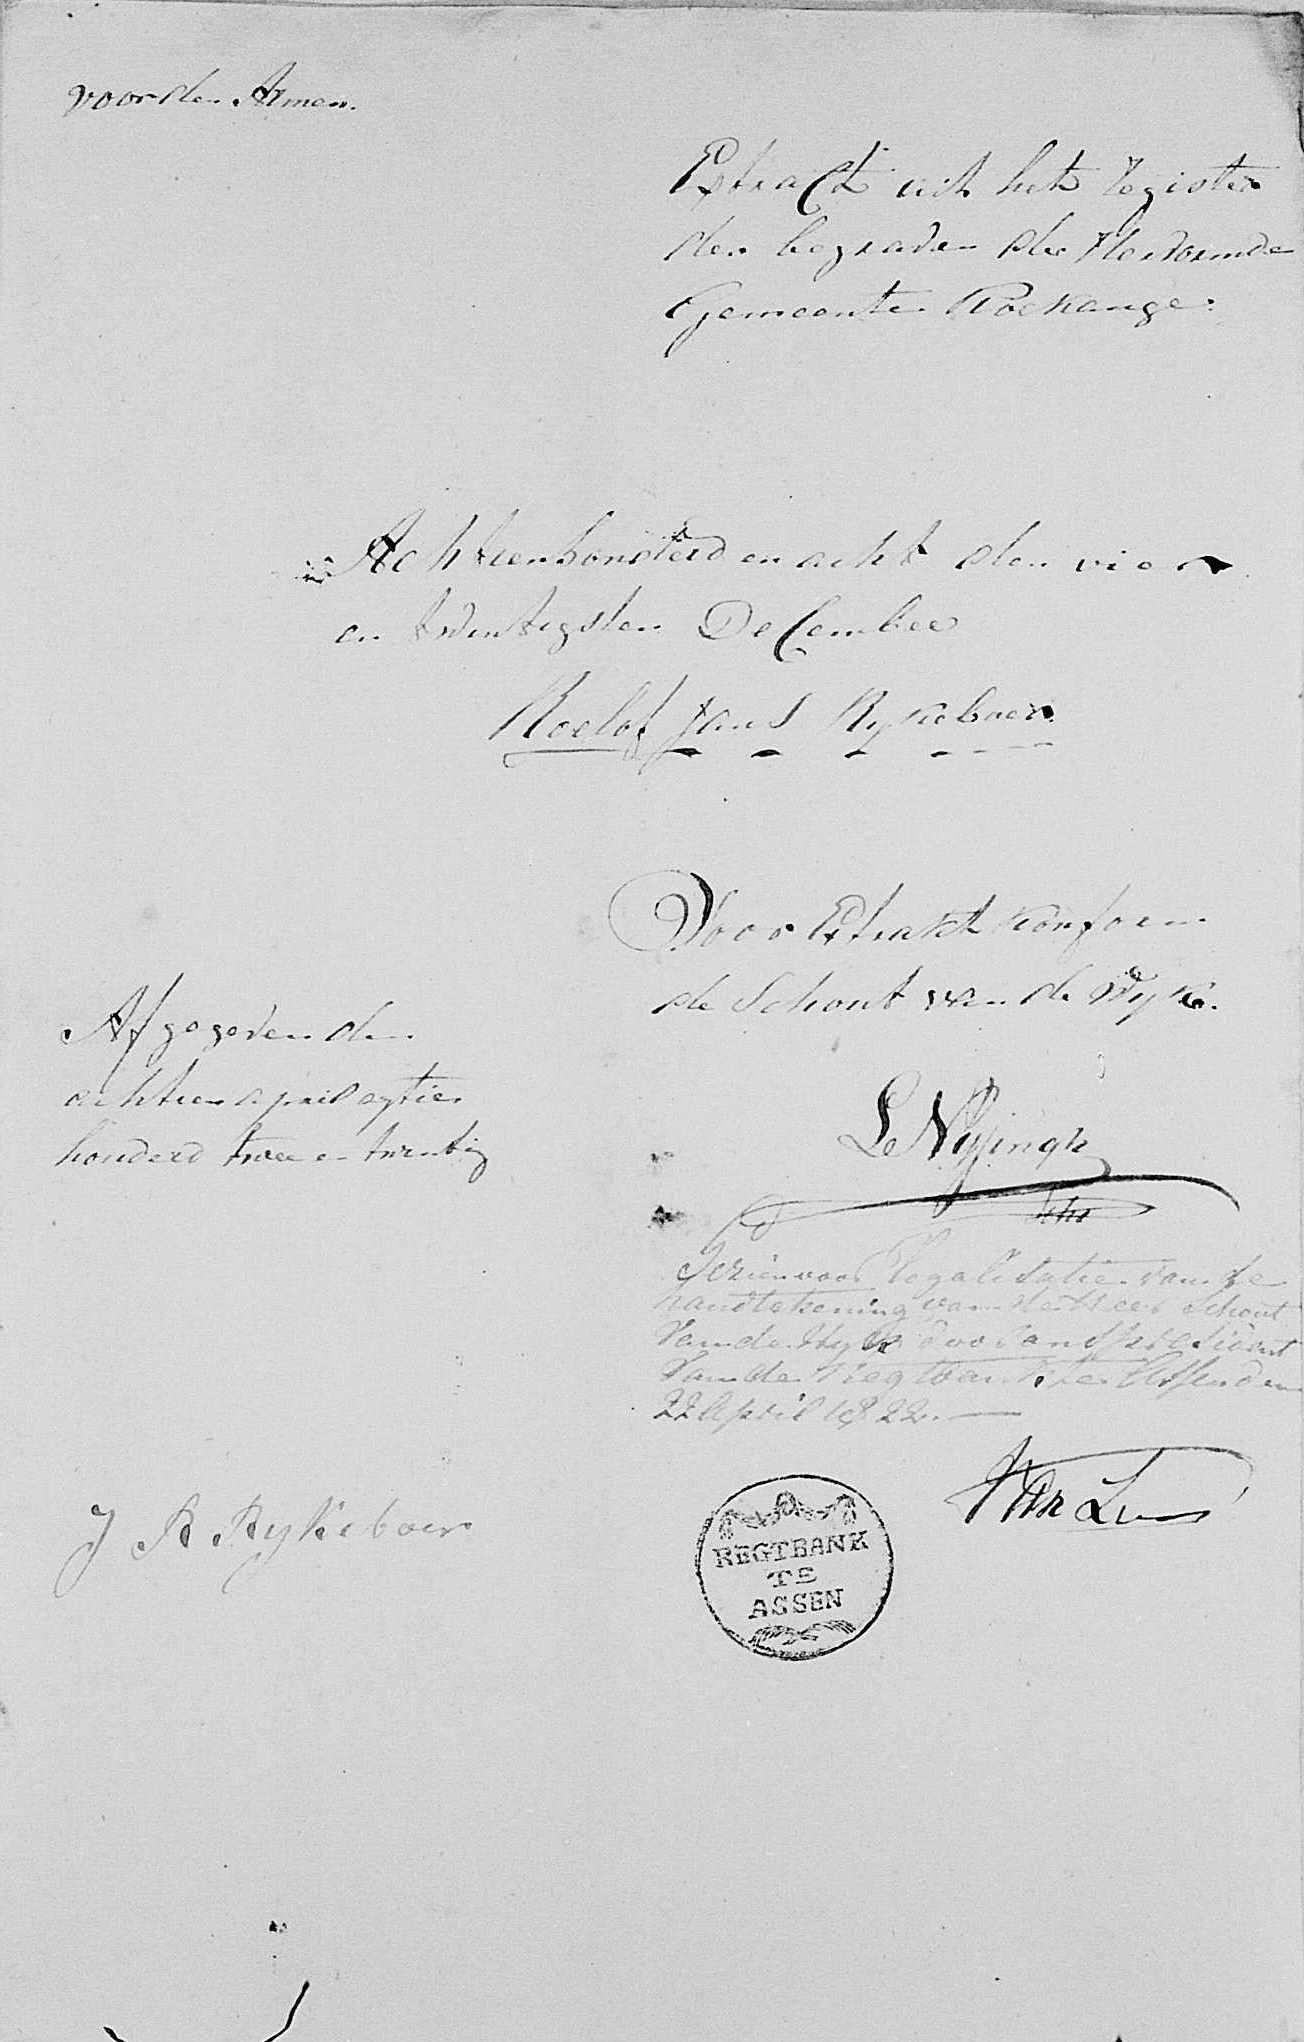 voor den Armen.
Extract uit het register
der begraven der Hervormde
Gemeente Koekange.
Achttienhonderd en acht den vier
en twintigsten December
Roelof Jans Rykeboer
Voor Extrakt konform
de Schout van de Wyk.
Afgegeven den
achttien april agtien
honderd twee en twentig
L Nysingh
Gezien voor legalisatie van de
handtekening van den Heer Schout
van de Wyk door ons president
van de Regtbank te Assen den
22 April 1822.
J R Rykeboer
Van L
REGTBANK
TE
ASSEN